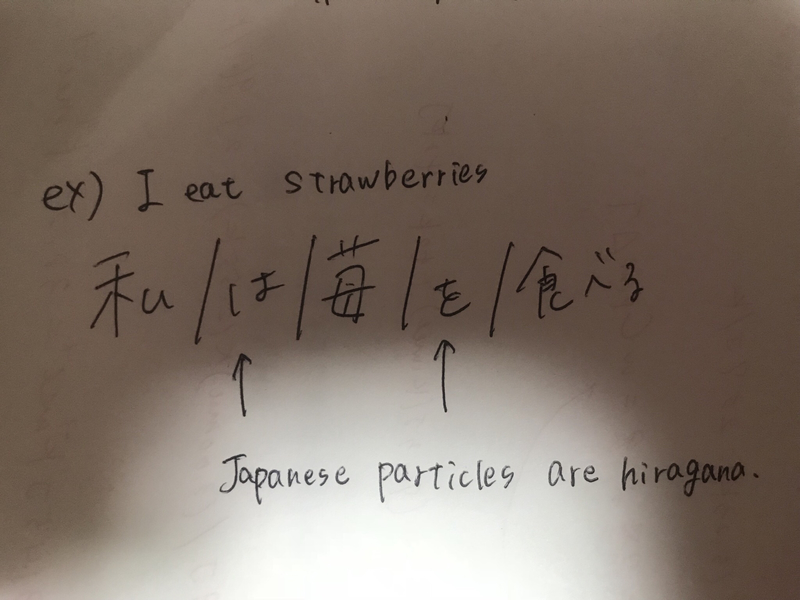 ex) I eat strawberries
私/は/苺/を/食べる
↑ ↑
Japanese particles are hiragana.